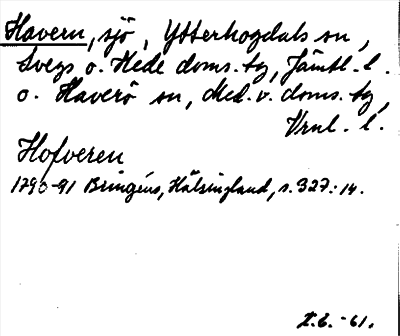 Havern, sjö, Ytterhogdals sn,
Svegs o. Hede doms. tg, Jämtl. l.
o. Haverö sn, Med. v. doms. tg,
Vrnl. l.
Hofveren
1790-91 Bringéus, Hälsingland, s. 327: 14.
I.E. -61.